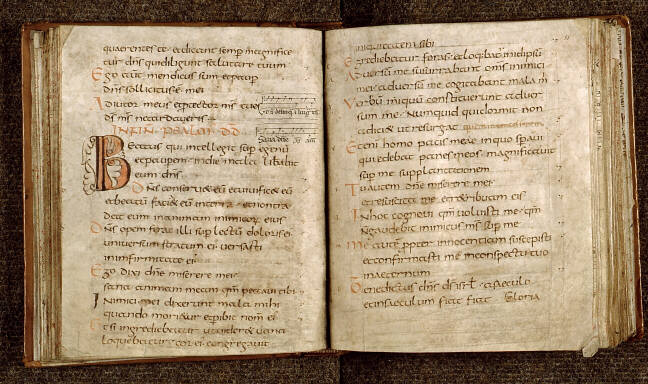 quaerentes te et dicant semp magnifice
tur dns qui diligunt salutare tuum
Ego aute mendicus sum et paup
dns sollicitus e mei
Adiutor meus et ptector ms es tu
ds ms ne tardaueris
IN FIN PSALM DD
Beatus qui intellegit sup egenu
et paupere in die mala liberabit
eum dns
Dns conseruet eu et uiuificet eu
et beatu faciat eu in terra et non tra
dat eum in animam inimicor eius
Dns opem ferat illi sup lectu doloris ei
uniuersum stratum ei uersasti
in infirmitate ei
Ego dixi dne miserere mei
sana animam meam qm peccaui tibi
Inimici mei dixerunt mala mihi
quando morietur et pibit nom ei
Et si ingrediebatur ut uideret uana
loquebatur cor ei congregauit
iniquitatem sibi
Egrediebatur foras et loquebat in idipsu
Aduersu me susurrabant oms inimici
mei aduersu me cogitabant mala m
Verbu iniquu constituerunt aduer
sum me Numquid qui dormit non
adiciet ut resurgat
Eteni homo pacis meae in quo speraui
qui edebat panes meos magnificauit
sup me supplantationem
Tu autem dne miserere mei
et resuscita me et retribuam eis
In hoc cognoui qm uoluisti me qm
n gaudebit inimicus ms sup me
Me aute ppter innocentiam suscepisti
et confirmasti me in conspectu tuo
in aeternum
Benedictus dns ds isrl a saeculo
et in saeculum fiat fiat Gloria